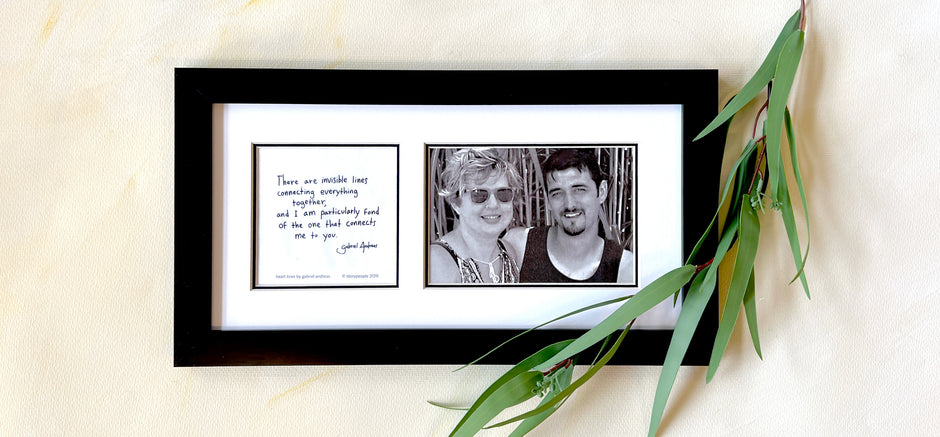 There are invisible lines
connecting everything
together,
and I am particularly fond
of the one that connects
me to you.
Gabriel Andreas
heart lines by gabriel andreas © storypeople 2019